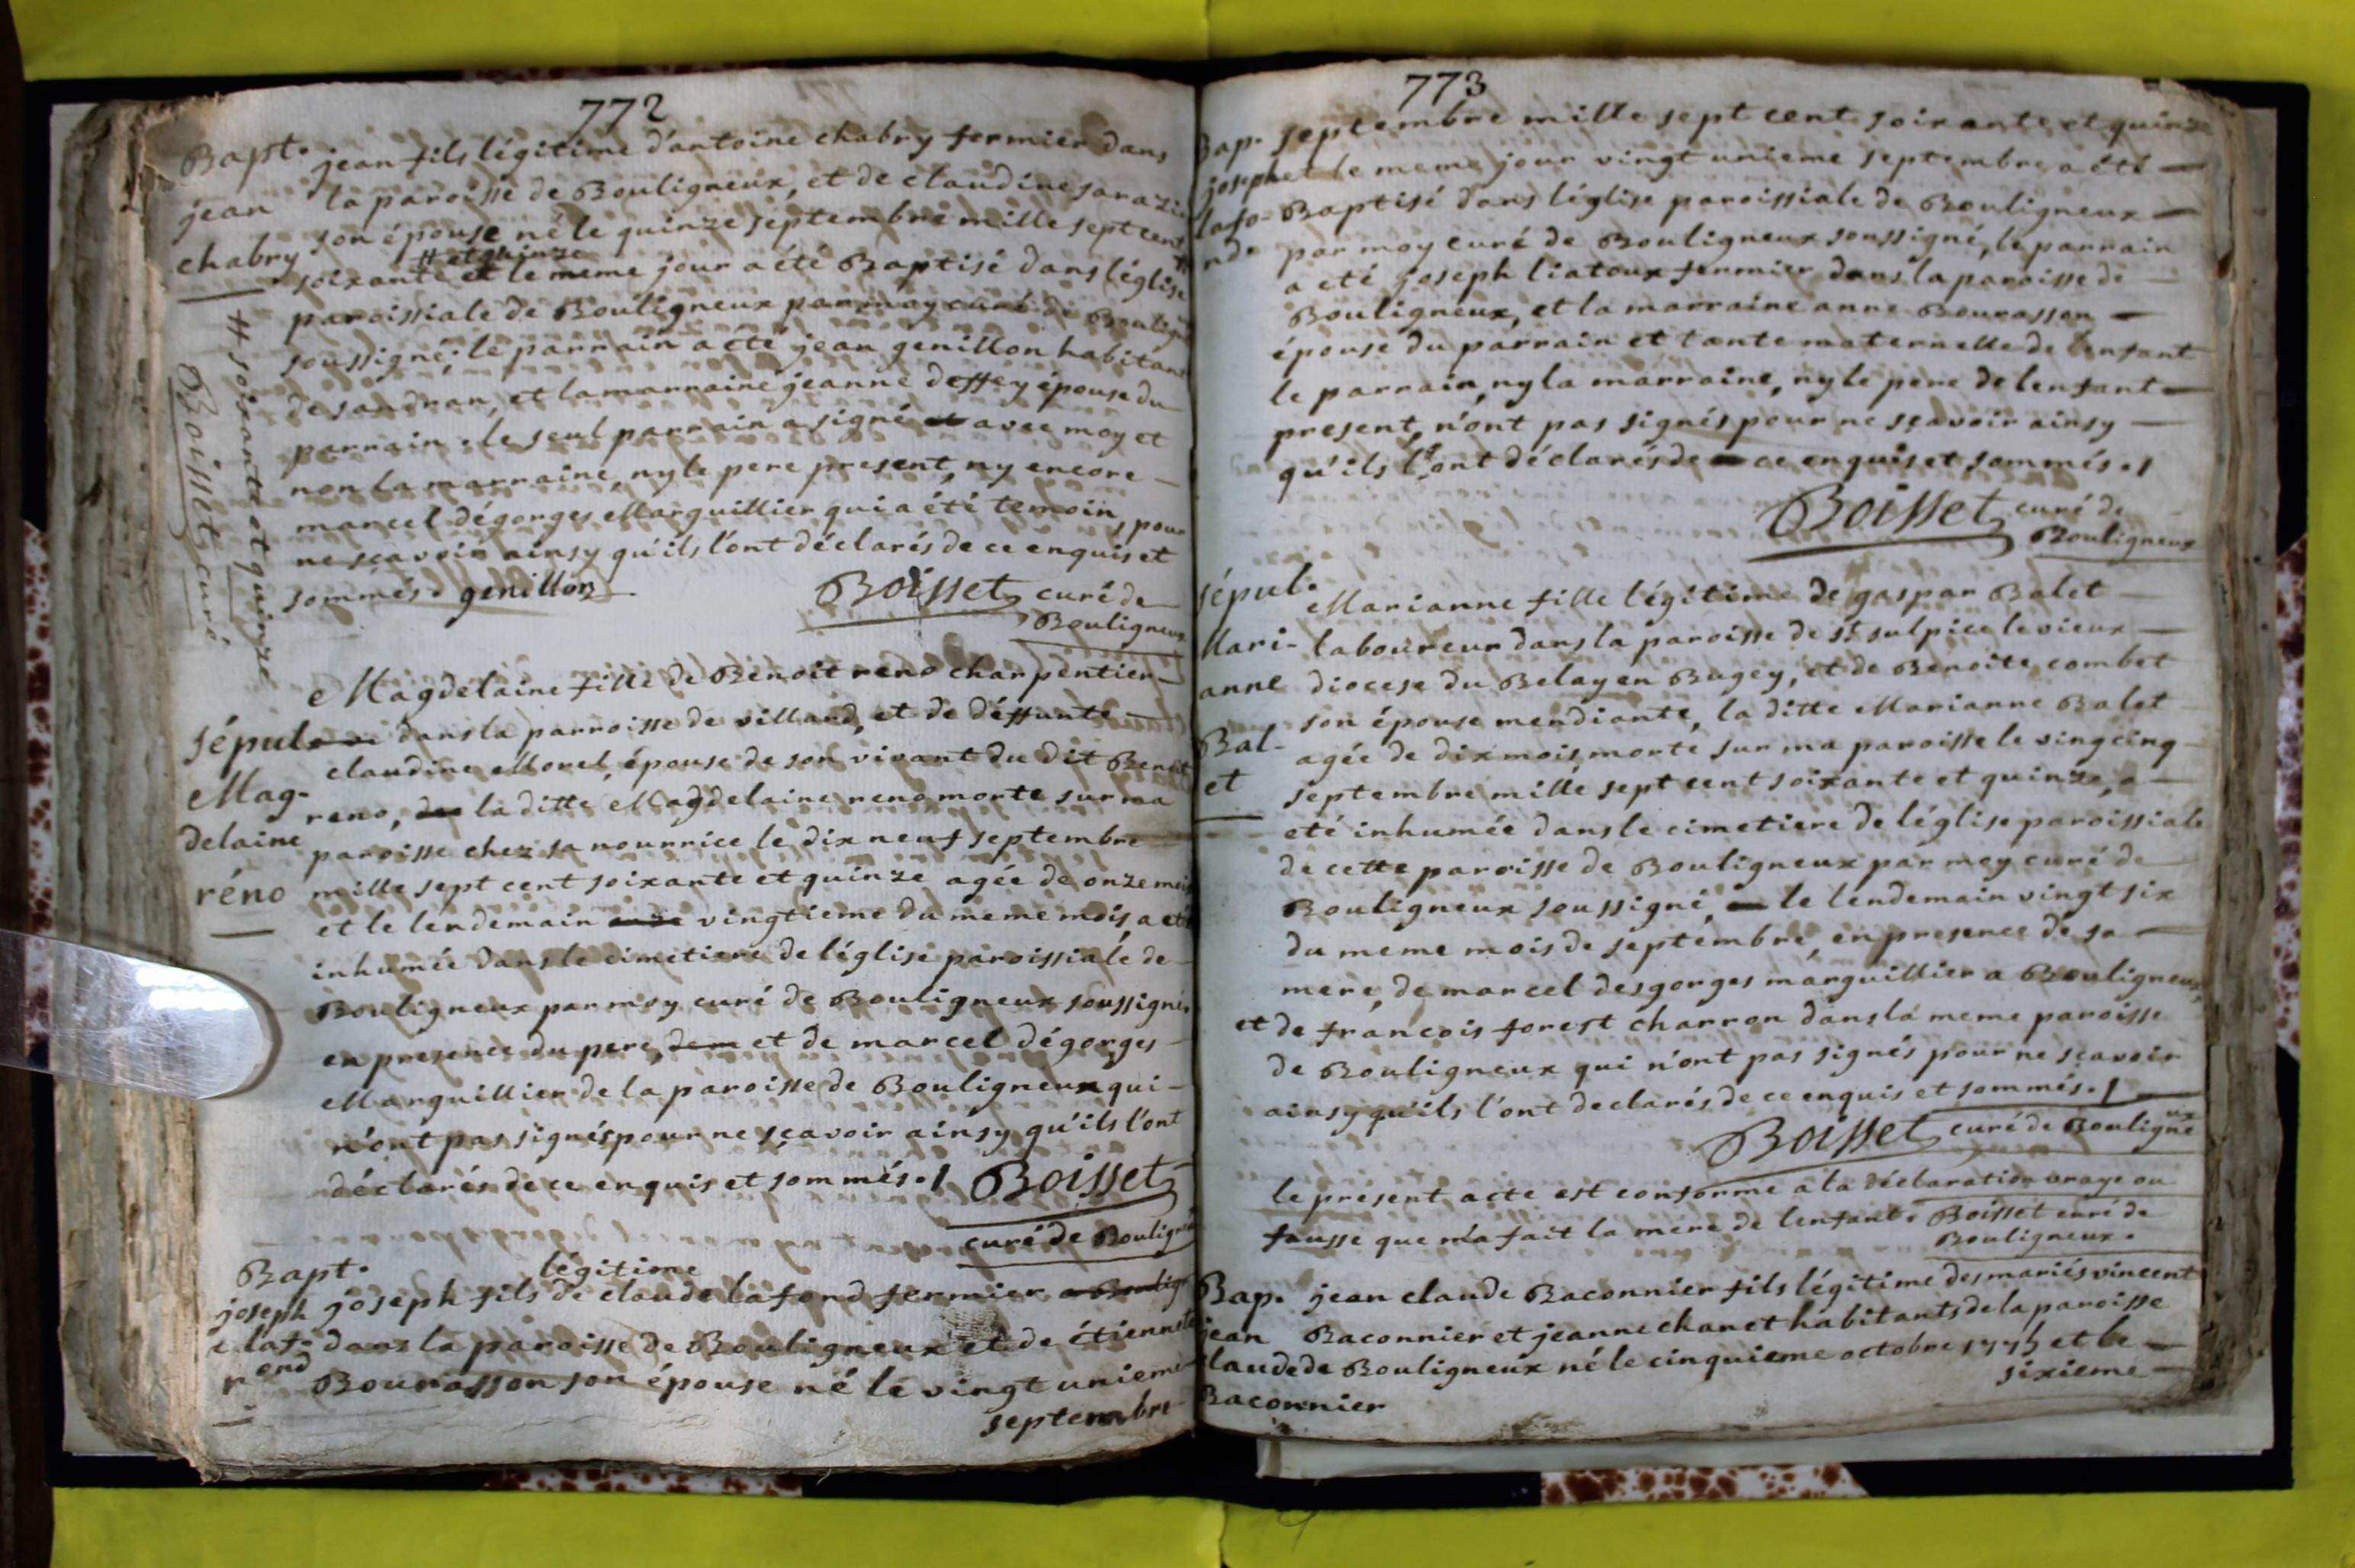 772
Bapt. jean fils légitime d'antoine chabry fermier dans
jean la paroisse de Bouligneux, et de claudine sarazin
chabry son épouse né le quinze septembre mille sept cent #
# et quinze
soixante et le meme jour a été Baptisé dans l'église
paroissiale de Bouligneux par moy curé de Bouligneux
soussigné; le parrain a été jean genillon habitant
de sandran, et la marraine jeanne deffey épouse du
parrain. le seul parrain a signé et avec moy et
non la marraine, ny le pere present, ny encore
marcel dégorges Marguillier qui a été temoin, pour
ne sçavoir ainsy qu'ils l'ont déclarés de ce enquis et
sommés. genillon Boisset curé de
Bouligneux
# soixante et quinze
Boisset curé
Magdelaine fille de Benoit reno charpentier
sépul. dans la parroisse de villard, et de déffunte
claudine Morel, épouse de son vivant du dit Benoit
Mag- reno, la ditte Magdelaine reno morte sur ma
delaine paroisse chez sa nourrice le dix neuf septembre
réno mille sept cent soixante et quinze agée de onze mois
et le lendemain onze vingtieme du meme mois, a eté
inhumée dans le cimetiere de l'église paroissiale de
Bouligneux par moy curé de Bouligneux soussigné,
en presence du pere, dem et de marcel dégorges
Marguillier de la paroisse de Bouligneux qui
n'ont pas signés pour ne sçavoir ainsy qu'ils l'ont
déclarés de ce enquis et sommés./ Boisset
curé de Bouligneux
Bapt. légitime
joseph joseph fils de claude lafond fermier a Boulign
lafo- dans la paroisse de Bouligneux et de étiennete
ond Bourasson son épouse né le vingt unieme
septembre
773
Bap. septembre mille sept cent soixante et quinze
joseph et le meme jour vingt unieme septembre a été
lafo- Baptisé dans l'église paroissiale de Bouligneux
nde par moy curé de Bouligneux soussigné, le parrain
a eté joseph liatoux fermier dans la paroisse de
Bouligneux, et la marraine anne Bourasson
épouse du parrain et tante maternelle de l'enfant
le parrain, ny la marraine, ny le pere de l'enfant
present, n'ont pas signés pour ne sçavoir ainsy
qu'ils l'ont déclarés de ce enquis et sommés./
Boisset curé de
Bouligneux
sépul. Marianne fille légitime de gaspar Balet
Mari- laboureur dans la paroisse de st sulpice le vieux
anne diocese du Belay en Bugey, et de Benoite combet
son épouse mendiante, la ditte Marianne Balet
Bal- agée de dix mois morte sur ma paroisse le vingcinq
et septembre mille sept cent soixante et quinze, a
eté inhumée dans le cimetiere de l'église paroissiale
de cette paroisse de Bouligneux par moy curé de
Bouligneux soussigné, le lendemain vingt six
du meme mois de septembre, en presence de sa
mere, de marcel desgorges marguillier a Bouligneux,
et de francois forest charron dans la meme paroisse
de Bouligneux qui n'ont pas signés pour ne sçavoir
ainsy qu'ils l'ont declarés de ce enquis et sommés./
Boisset curé de Bouligneux
le present acte est conforme a la déclaration vraye ou
fausse que m'a fait la mere de l'enfant. Boisset curé de
Bouligneux.
Bap. jean claude Baconnier fils légitime des mariés vincent
jean Baconnier et jeanne chanet habitants de la paroisse
claude de Bouligneux né le cinquieme octobre 1775 et le
sixieme
Baconnier